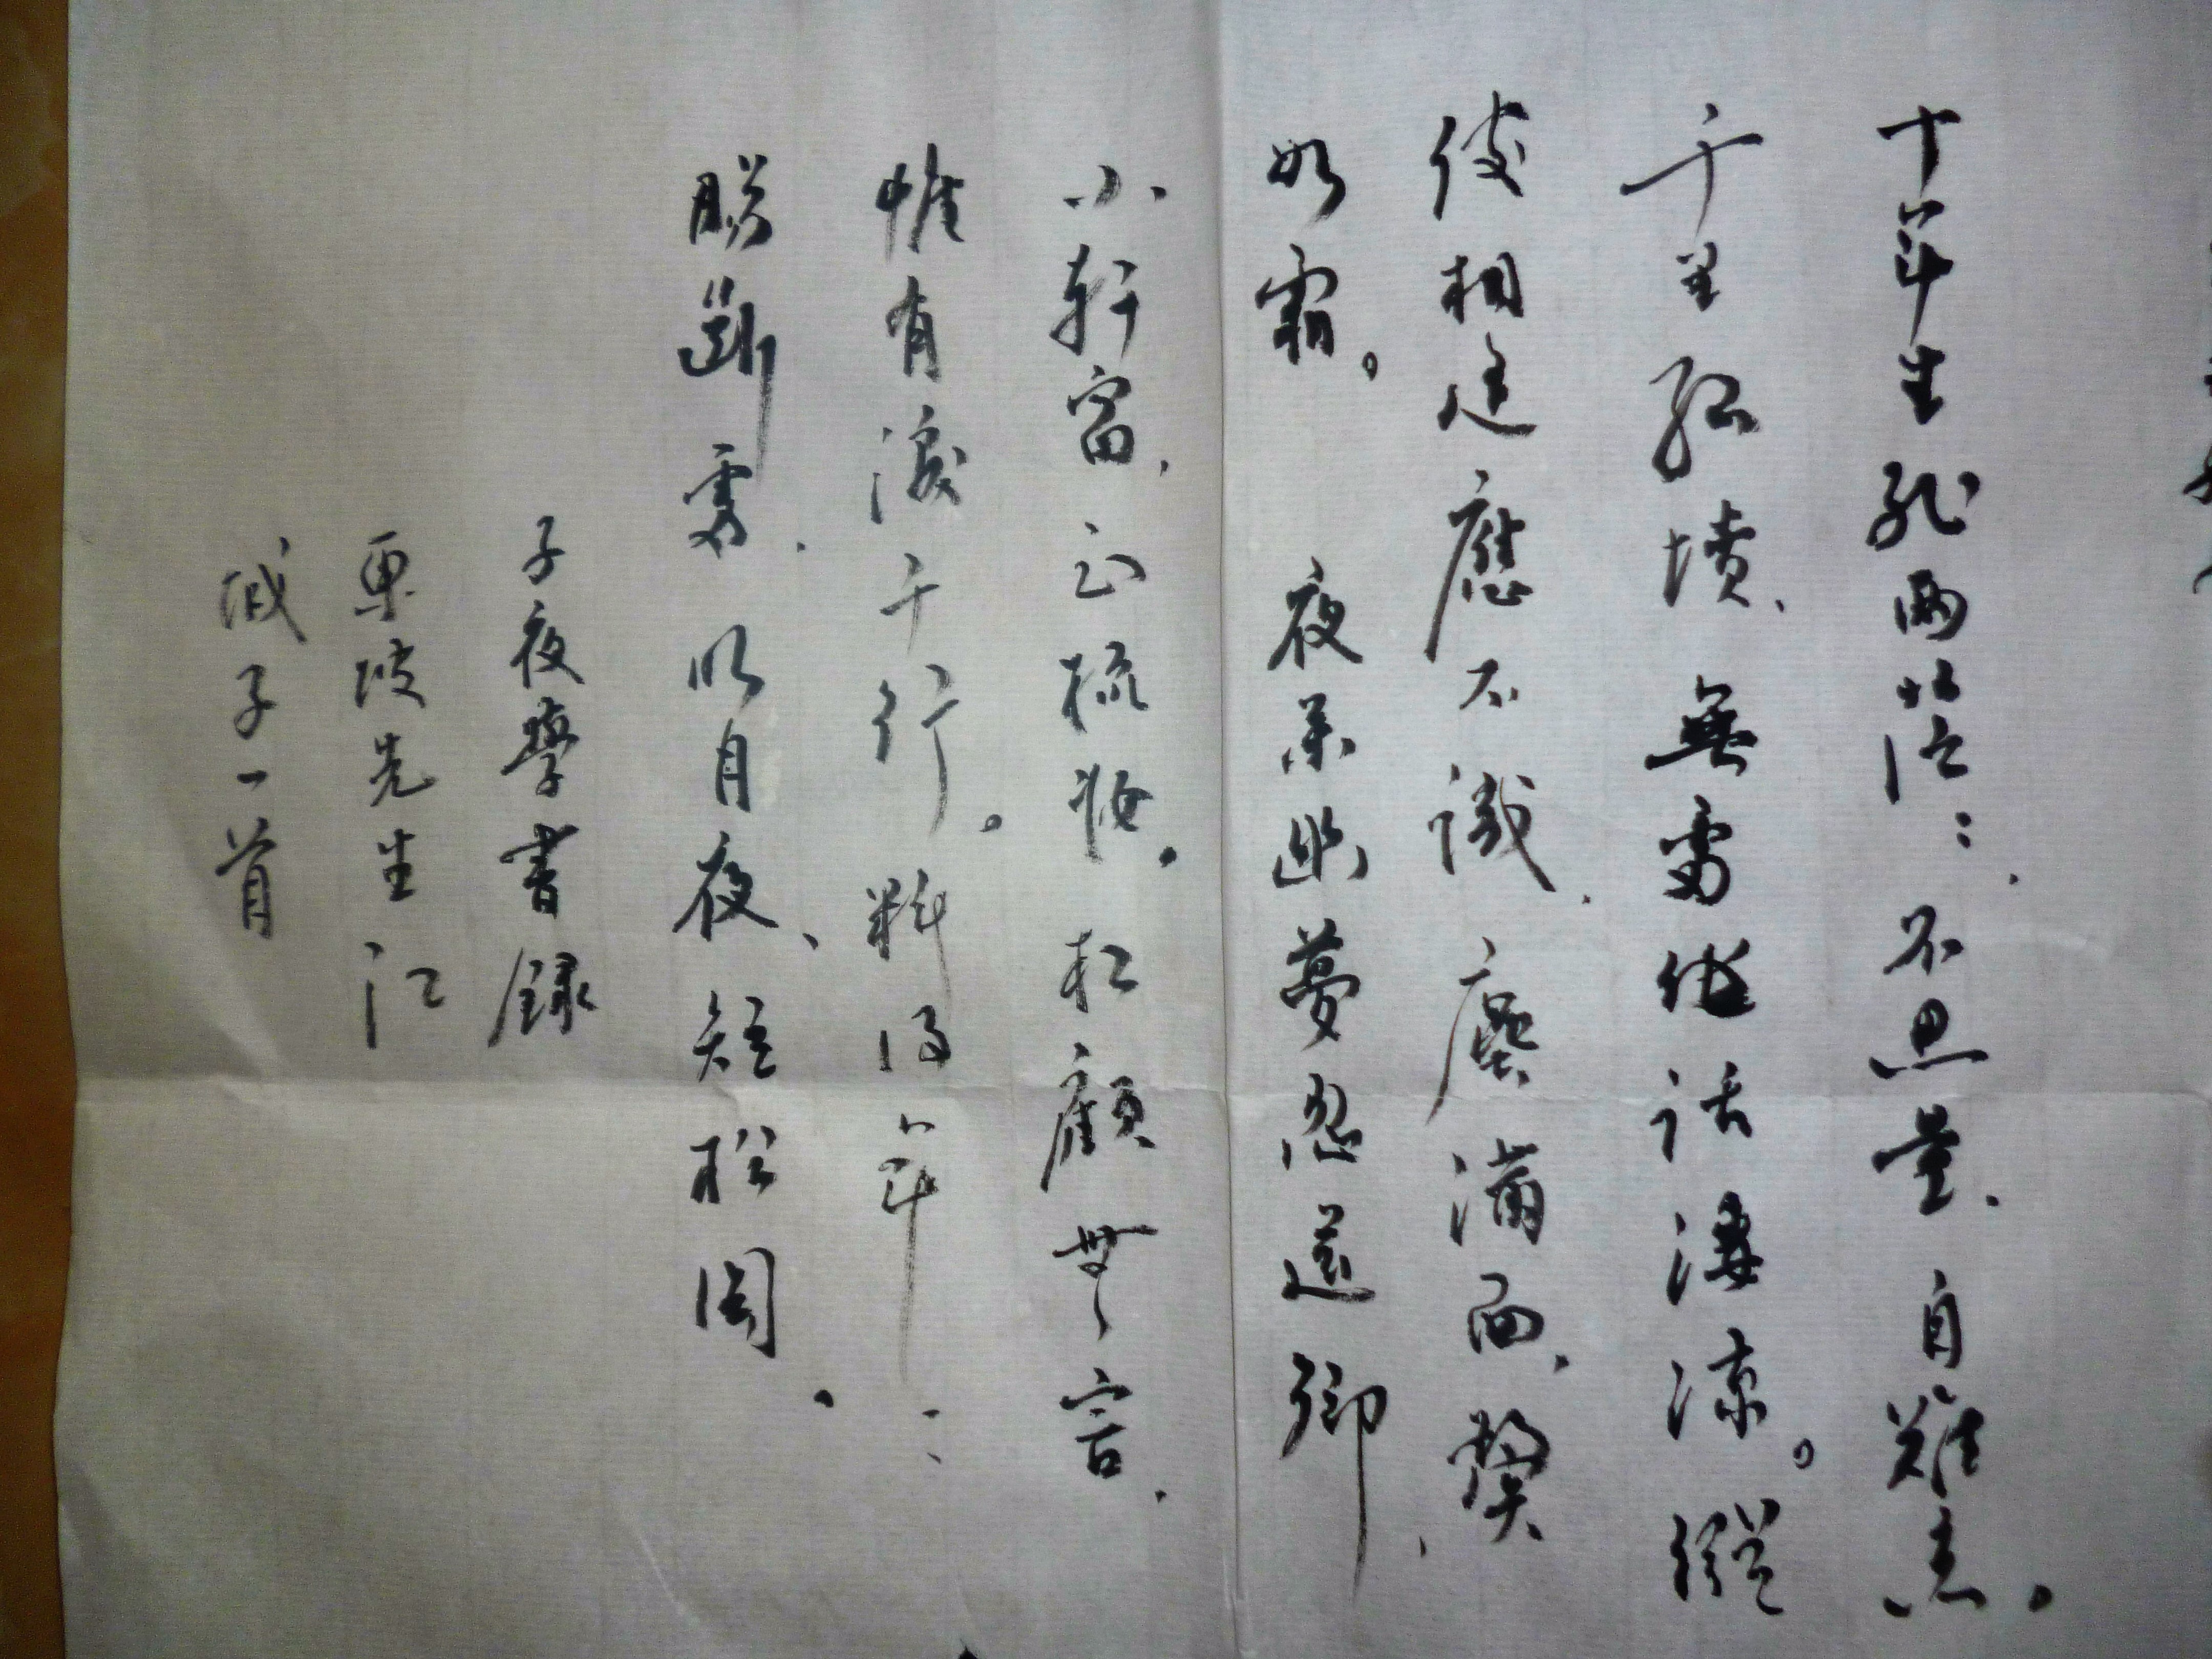 十年生死兩茫:、不思量、自難忘。
千里孤墳、無處話淒涼。縱
使相逢應不識、塵滿面、鬢
如霜。 夜來幽夢忽還鄉、
小軒窗、正梳妝。相顧無言、
惟有淚千行。料得年:
腸斷處、明月夜、短松岡。
子夜學書錄
東坡先生江
城子一首